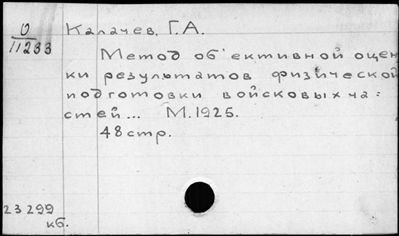 О
11233
Калачев, Г.А.
Метод об'ективной оцен
ки результатов физической
подготовки войсковых ча =
стей... М.1925.
48 стр.
23299
кб.